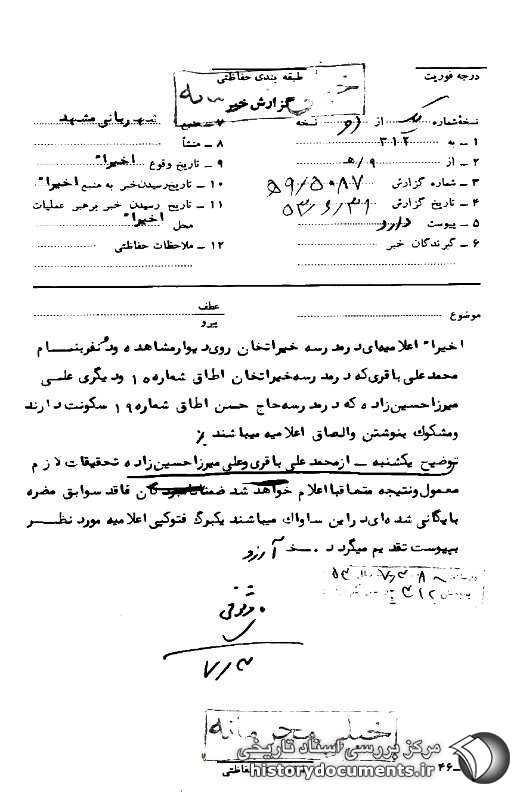 درجه فوریت
طبقه بندی حفاظتی
گزارش خبر
نسخه شماره یک از دو نسخه
۱ ــ به ۳۱۲
۲ ــ از ۹/هـ
۳ ــ شماره گزارش ۵۹/۵۰۸۷
۴ ــ تاریخ گزارش ۵۳/۶/۳۱
۵ ــ پیوست دارد
۶ ــ گیرندگان خبر
۷ ــ منبع شهربانی مشهد
۸ ــ منشأ
۹ ــ تاریخ وقوع اخیراً
۱۰ ــ تاریخ رسیدن خبر به منبع اخیراً
۱۱ ــ تاریخ رسیدن خبر برهبر عملیات
محل اخیراً
۱۲ ــ ملاحظات حفاظتی
موضوع
عطف
پیرو
اخیراً اعلامیه‌ای در مدرسه خیراتخان روی دیوار مشاهده و دو نفر بنام
محمد علی باقری که در مدرسه خیراتخان اطاق شماره ۱۰ و دیگری علی
میرزا حسین زاده که در مدرسه حاج حسن اطاق شماره ۱۹ سکونت دارند
و مشکوک بنوشتن والصاق اعلامیه میباشند ٪
توضیح یکشنبه ــ از محمد علی باقری وعلی میرزا حسین زاده تحقیقات لازم
معمول ونتیجه متعاقبا اعلام خواهد شد ضمنا نامبردگان فاقد سوابق مضره
بایگانی شده‌ای در این ساواک میباشند یکبرگ فتوکپی اعلامیه مورد نظر
بپیوست تقدیم میگردد . سخ آرزو
۷/۳
خیلی محرمانه
طبقه بندی حفاظتی
۴۶ــ
مرکز بررسی اسناد تاریخی
historydocuments.ir